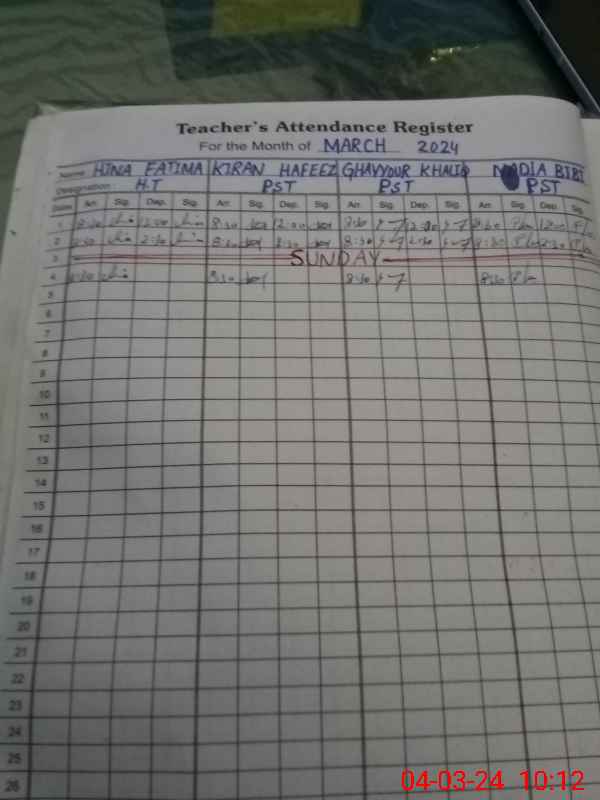 Teacher's Attendance Register
For the Month of MARCH 2024
Name HINA FATIMA KIRAN HAFEEZ GHAYYOUR KHALID NADIA BIBI
Designation H.T PST PST PST
Date Arr. Sig. Dep. Sig. Arr. Sig. Dep. Sig. Arr. Sig. Dep. Sig. Arr. Sig. Dep. Sig.
1 8:30 12:00 8:30 12:00 8:30 12:00 8:30 12:00
2 8:30 2:30 8:30 2:30 8:30 2:30 8:30 2:30
3 SUNDAY
4 8:30 8:30 8:30 8:30
5
6
7
8
9
10
11
12
13
14
15
16
17
18
19
20
21
22
23
24
25
26
04-03-24 10:12